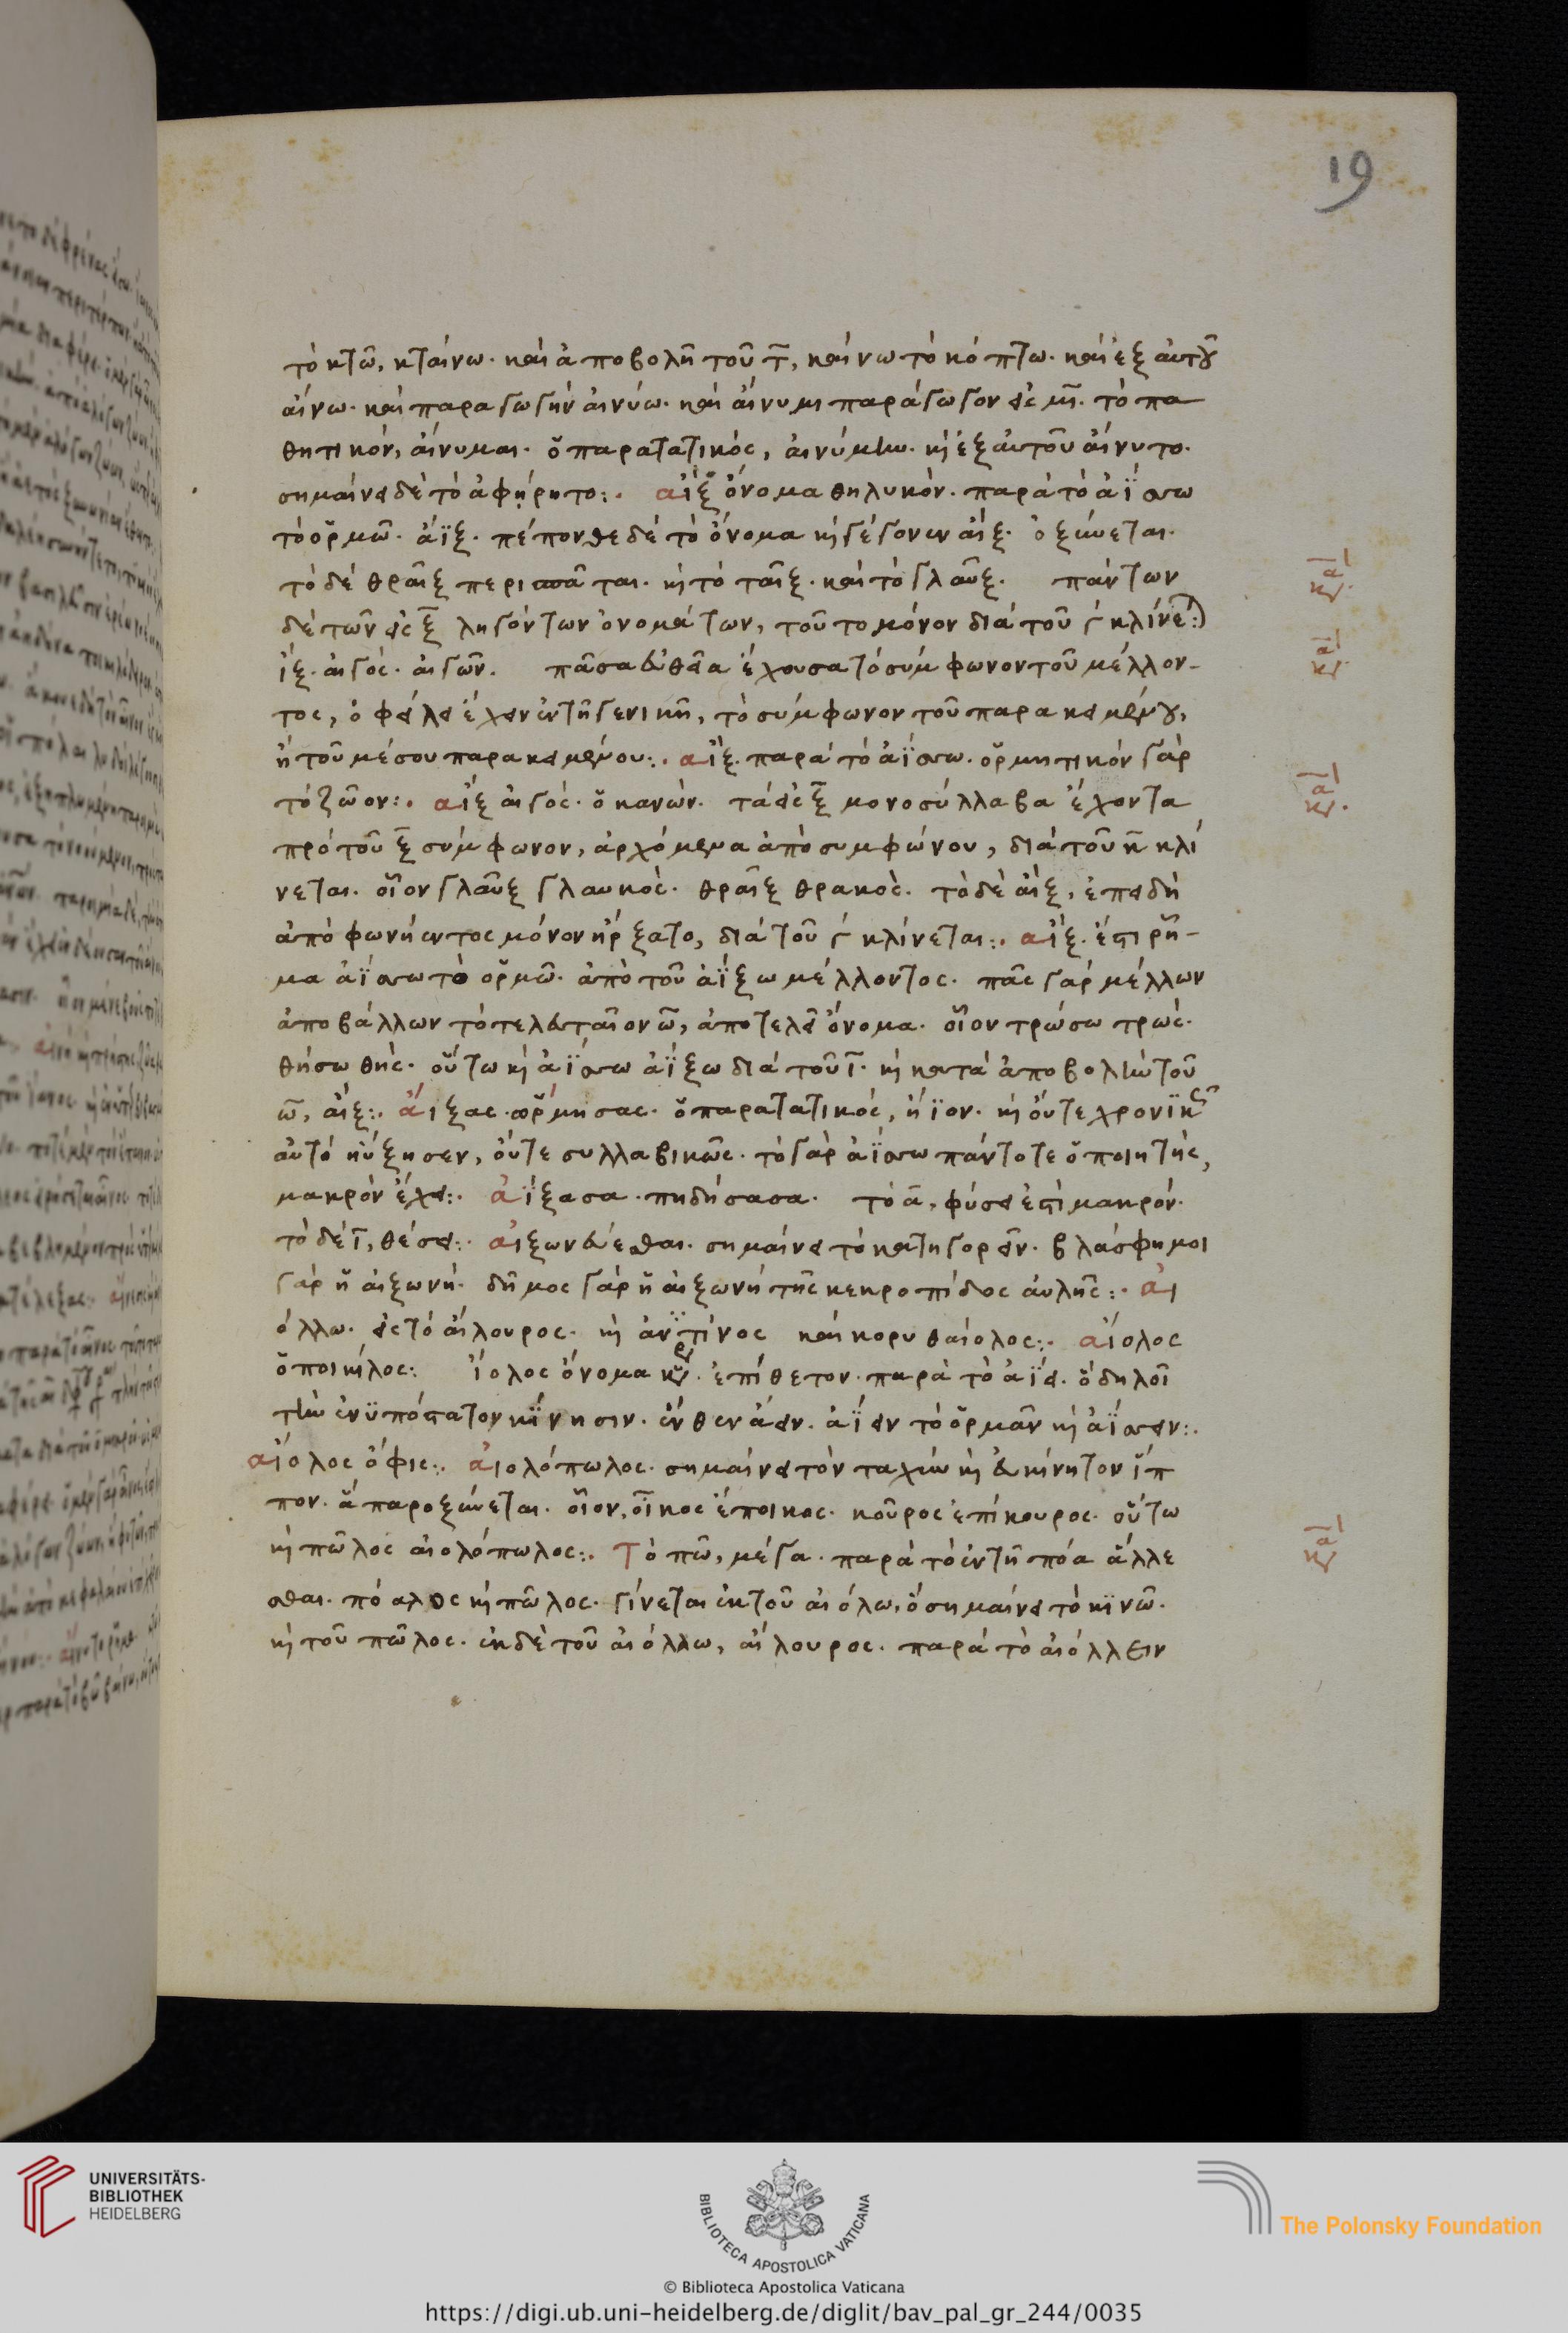 19
τὸ κτῶ, κταίνω· καὶ ἀποβολῆ τοῦ τ̅, καίνω τὸ κόπτω· καὶ ἐξ αὐτοῦ
αἴνω· καὶ παραγωγὴν αἰνύω· καὶ αἴνυμι παράγωγον εἰς μ̅ι̅. τὸ πα
θητικόν, αἴνυμαι· ὁ παρατατικός, αἰνύμην. κὶ ἐξ αὐτοῦ αἴνυτο·
σημαίνει δὲ τὸ ἀφῄρητο:. αἴξ ὄνομα θηλυκὸν· παρὰ τὸ ἀΐσσω
τὸ ὁρμῶ· ἄϊξ· πέπονθε δὲ τὸ ὄνομα κὶ γέγονεν αἴξ· ὀξύνεται·
τὸ δὲ θρᾶιξ περισπᾶται. κὶ τὸ ταῖξ· καὶ τὸ γλαῦξ. πάντων
δὲ τῶν εἰς ξ̅ ληγόντων ὀνομάτων, τοῦτο μόνον διὰ τοῦ γ κλίνε:)
ἴξ· αἰγός· αἰγῶν. πᾶσα εὐθεῖα ἔχουσα τὸ σύμφωνον τοῦ μέλλον-
τος, ὀφείλει ἔχειν ἐν τῆ γενικῆ, τὸ σύμφωνον τοῦ παρακειμένου,
ἢ τοῦ μέσου παρακειμένου:. αἴξ· παρὰ τὸ ἀΐσσω. ὁρμητικόν γὰρ
τὸ ζῶον:. αἴξ αἰγός· ὁ κανών· τὰ εἰς ξ̅ μονοσύλλαβα ἔχοντα
πρὸ τοῦ ξ̅ σύμφωνον, ἀρχόμενα ἀπὸ συμφώνου, διὰ τοῦ κ̅ κλί
νεται. οἷον γλαῦξ γλαυκὸς· θρᾶιξ θρακὸς. τὸ δὲ αἴξ, ἐπειδὴ
ἀπὸ φωνήεντος μόνον ἤρξατο, διὰ τοῦ γ κλίνεται:. αἴξ· ἐπιρρη-
μα ἀΐσσω τὸ ὁρμῶ· ἀπὸ τοῦ ἀΐξω μέλλοντος· πᾶς γὰρ μέλλων
ἀποβάλλων τὸ τελευταῖον ω̅, ἀποτελεῖ ὄνομα· οἷον τρώσω τρώς·
θήσω θής· οὕτω κὶ ἀΐσσω ἀΐξω διὰ τοῦ ι̅· κὶ κατὰ ἀποβολὴν τοῦ
ω̅, αἴξ:. ἀίξας· ὁρμήσας· ὁ παρατατικός, ἤϊον· κὶ οὔτε χρονικῶς
αὐτὸ ηὔξησεν, οὔτε συλλαβικῶς· τὸ γὰρ ἀΐσσω πάντοτε ὁ ποιητής,
μακρόν ἔχει:. ἀΐξασα· πηδήσασα· τὸ α̅, φύσει ἐστὶ μακρόν·
τὸ δὲ ι̅, θέσει:. αἰξωνεύεσθαι· σημαίνει τὸ κατηγορεῖν· βλάσφημοι
γὰρ ἡ αἰξωνή· δῆμος γὰρ ἡ αἰξωνή τῆς κεκροπίδος αὐλῆς:· ἀι
όλλω· εἰς τὸ αἴλουρος· κὶ ἀντίνος καὶ κορυθαίολος:. αἰόλος
ὁ ποικίλος: ἴολος ὄνομα κύριον· ἐπίθετον· παρὰ τὸ ἀΐει· ὃ δηλοῖ
τὴν ἐνϋπόστατον κίνησιν· ἔνθεν ἄειν· ἀΐειν τὸ ὁρμᾶν κὶ ἀΐσσειν:.
αἰόλος ὄφις:. αἰολόπωλος· σημαίνει τὸν ταχὺν κὶ εὐκίνητον ἵπ
πον· ἃ παροξύνεται· οἷον, οἶκος ἔποικος· κοῦρος ἐπίκουρος· οὕτω
κὶ πῶλος αἰολόπωλος:. Τὸ πῶ, μέγα· παρὰ τὸ ἐν τῆ πόα ἅλλε
σθαι· πόαλος κὶ πῶλος· γίνεται ἐκ τοῦ αἰόλω, ὃ σημαίνει τὸ κινῶ·
κὶ τοῦ πῶλος· ἐκ δὲ τοῦ αἰόλλω, αἴλουρος· παρὰ τὸ αἰόλλειν
UNIVERSITÄTS-
BIBLIOTHEK
HEIDELBERG
BIBLIOTECA APOSTOLICA VATICANA
The Polonsky Foundation
© Biblioteca Apostolica Vaticana
https://digi.ub.uni-heidelberg.de/diglit/bav_pal_gr_244/0035